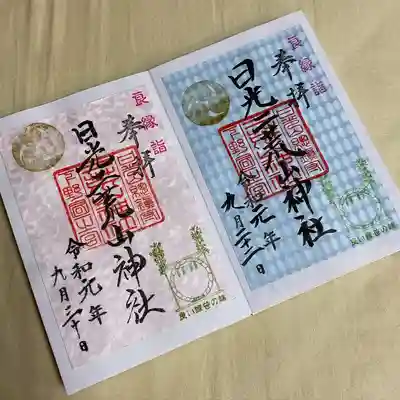 良縁詣
奉拝
日光二荒山神社
令和元年
九月二十二日
良い縁笹の輪
良縁詣
奉拝
日光二荒山神社
令和元年
九月二十日
良い縁笹の輪